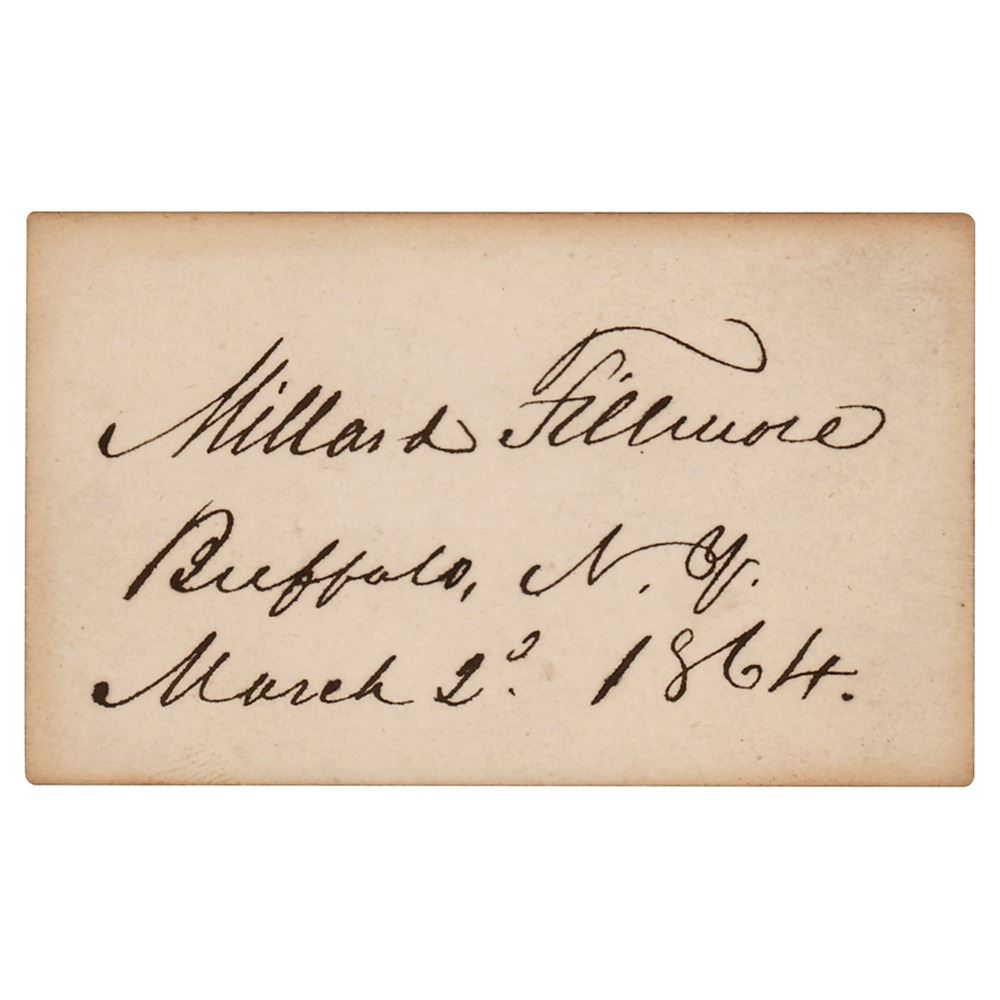 Millard Fillmore
Buffalo, N. Y.
March 2d. 1864.